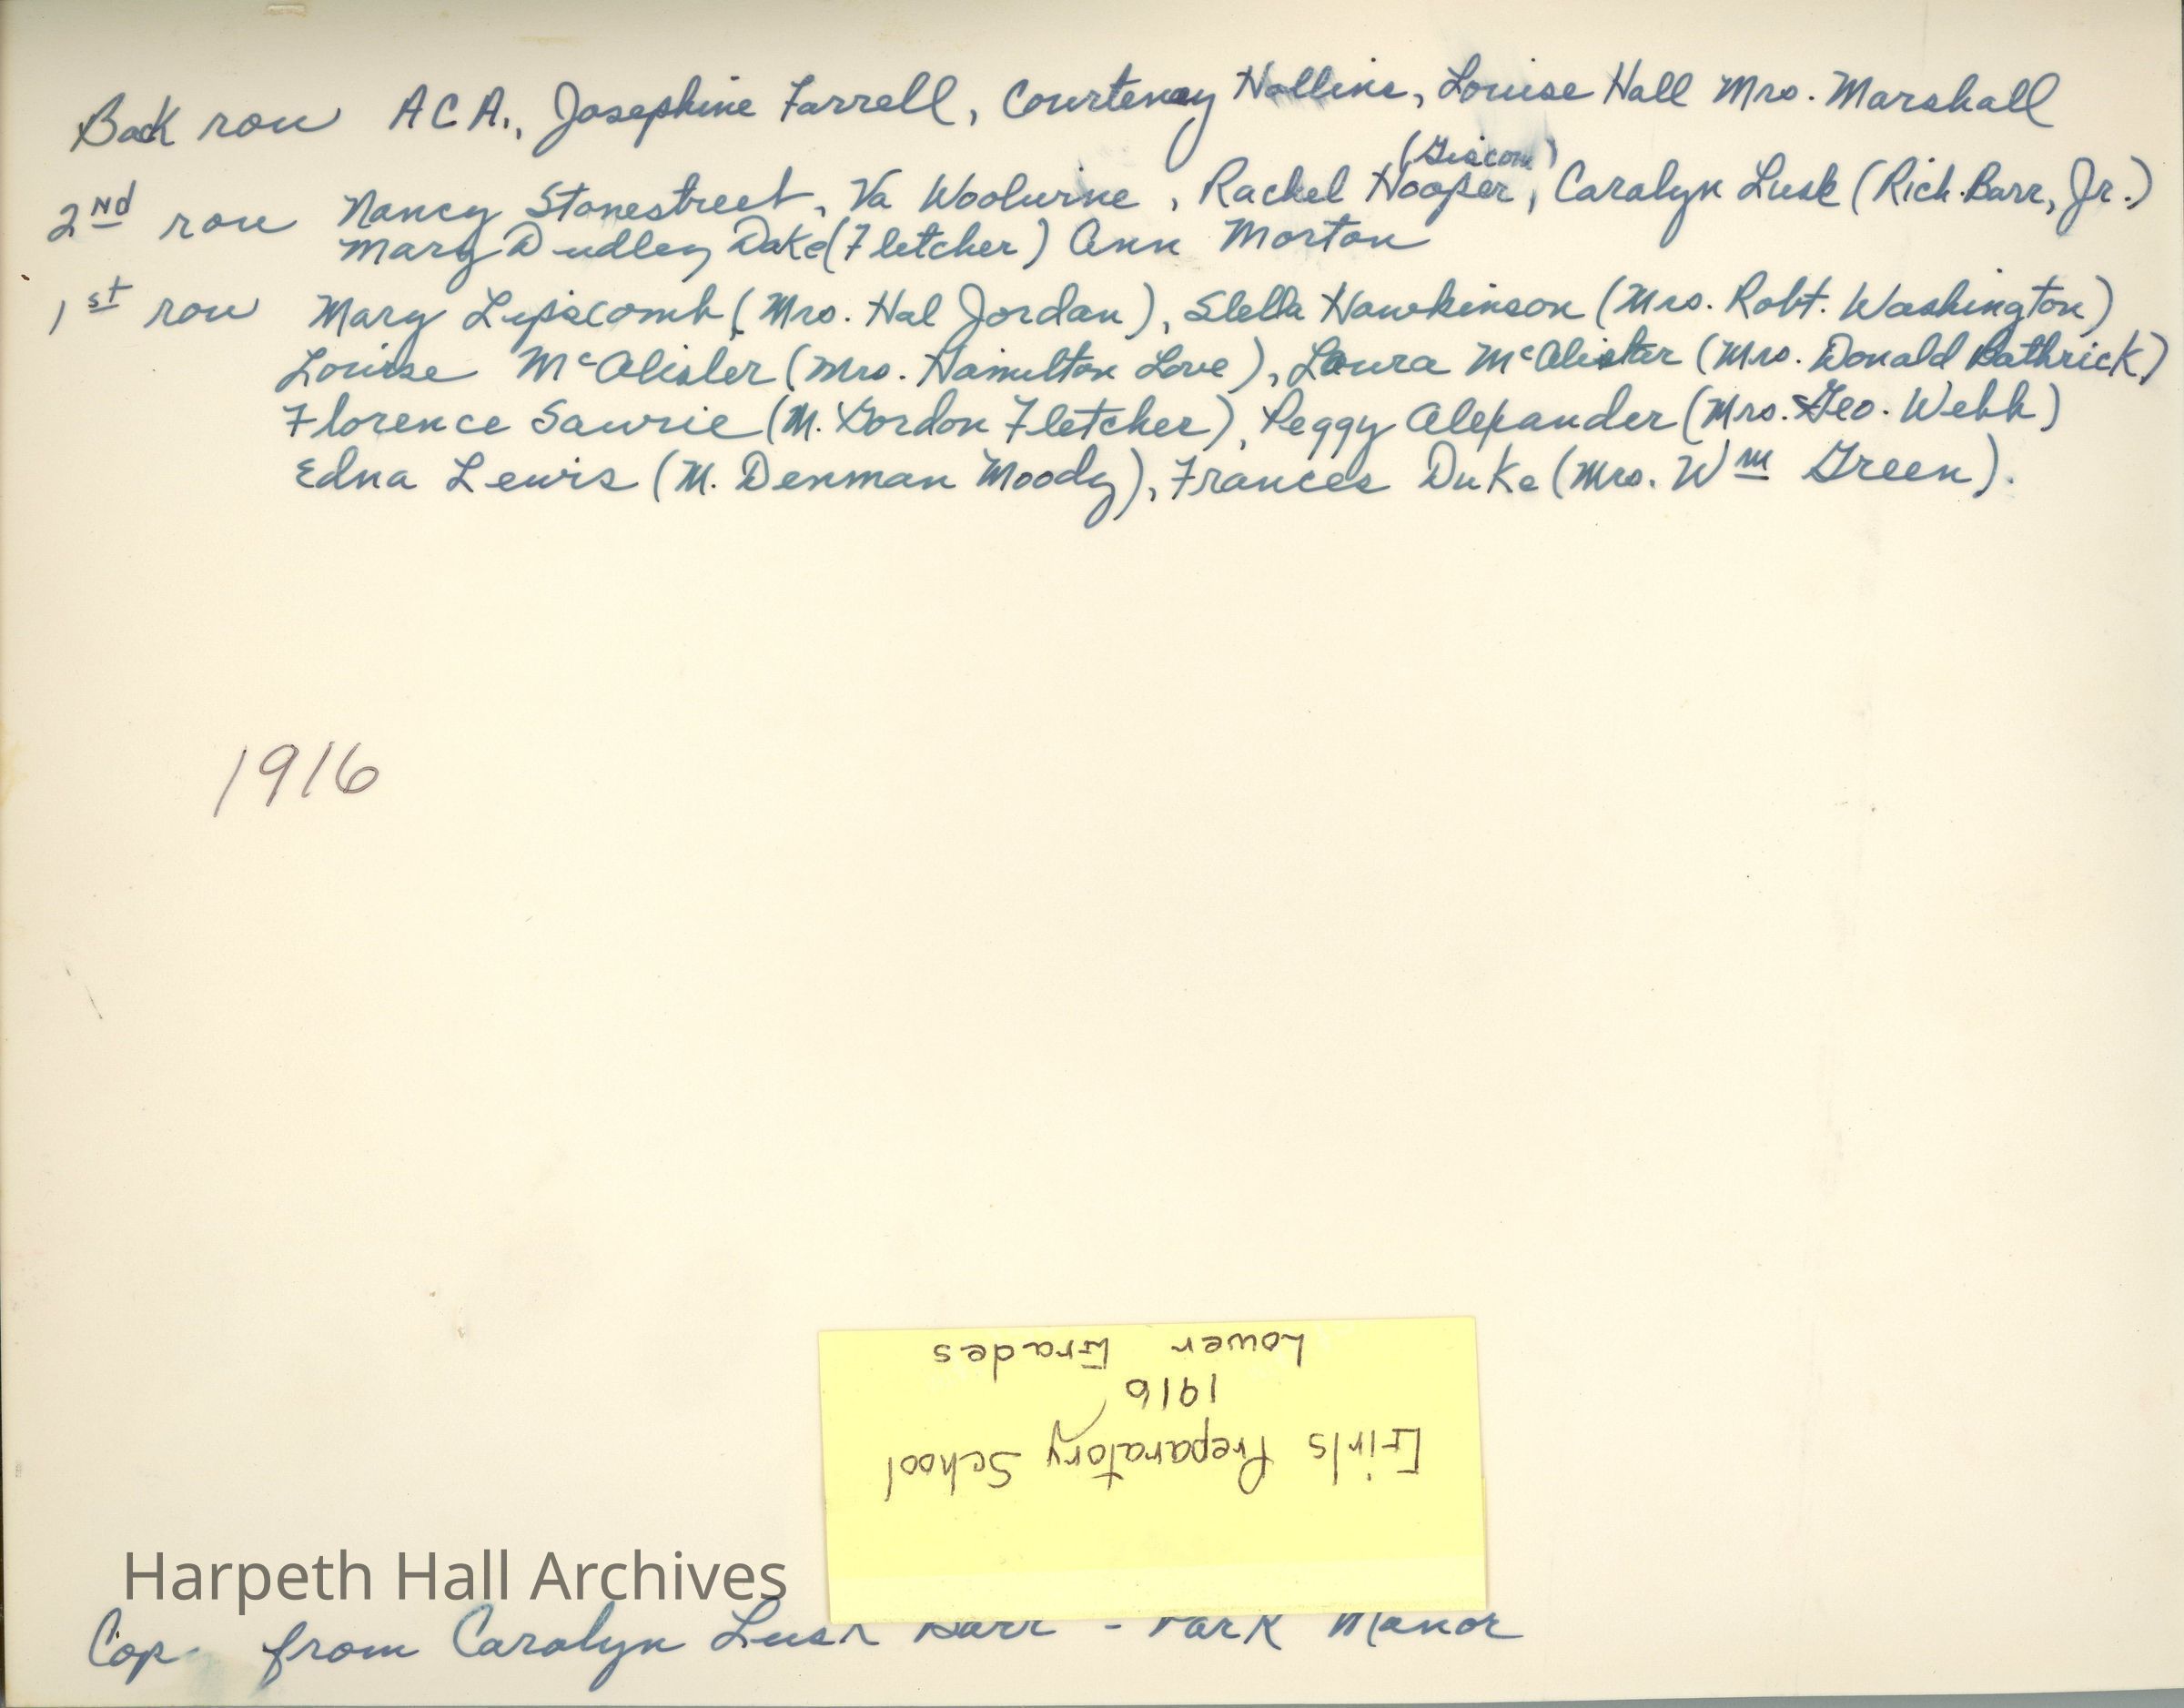 Back row A C A., Josephine Farrell, Courtenay Hollins, Louise Hall Mrs. Marshall
2nd row Nancy Stonestreet, Va Woolwine, Rachel Hooper, Carolyn Lusk (Rich. Barr, Jr.)
Mary Dudley Dake (Fletcher) Ann Morton
1st row Mary Lipscomb (Mrs. Hal Jordan), Stella Hawkinson (Mrs. Robt. Washington)
Louise McAlister (Mrs. Hamilton Love), Laura McAlister (Mrs. Donald Bathrick)
Florence Sawrie (M. Gordon Fletcher), Peggy Alexander (Mrs. Geo. Webb)
Edna Lewis (M. Denman Moody), Frances Duke (Mrs. Wm Green).
1916
Girls Preparatory School
1916
Lower Grades
Harpeth Hall Archives
from Carolyn Lusk Barr - Park Manor